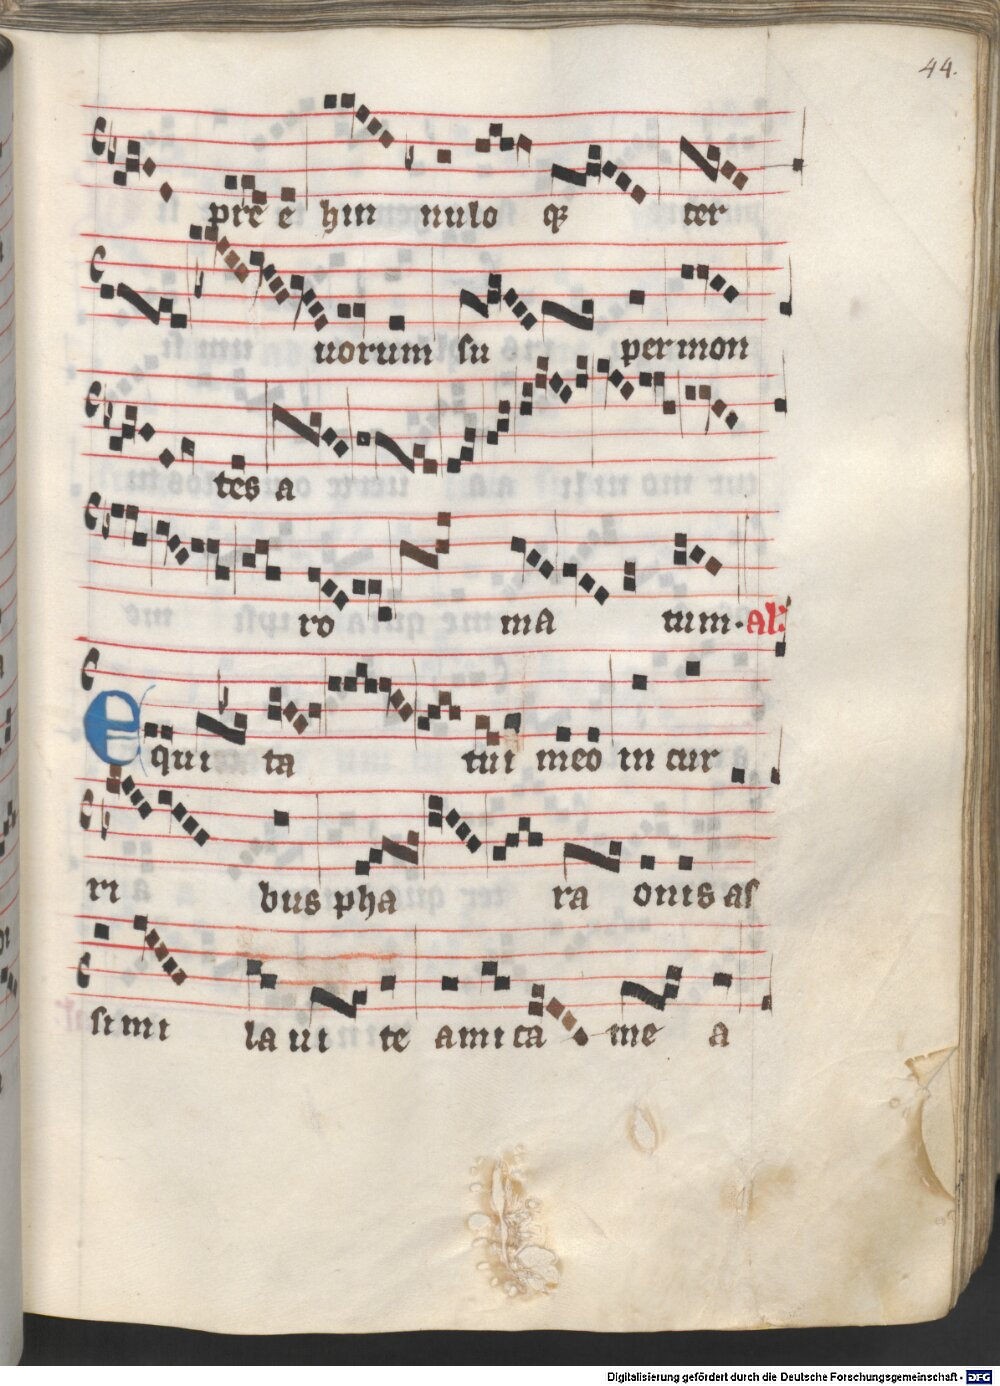 44.
pre e hin nulo qȝ ter
uorum su per mon
tes a
ro ma tum. al:
Equi ta tui meo in cur
ri bus pha ra onis as
simi laui te amica me a
Digitalisierung gefördert durch die Deutsche Forschungsgemeinschaft - DFG